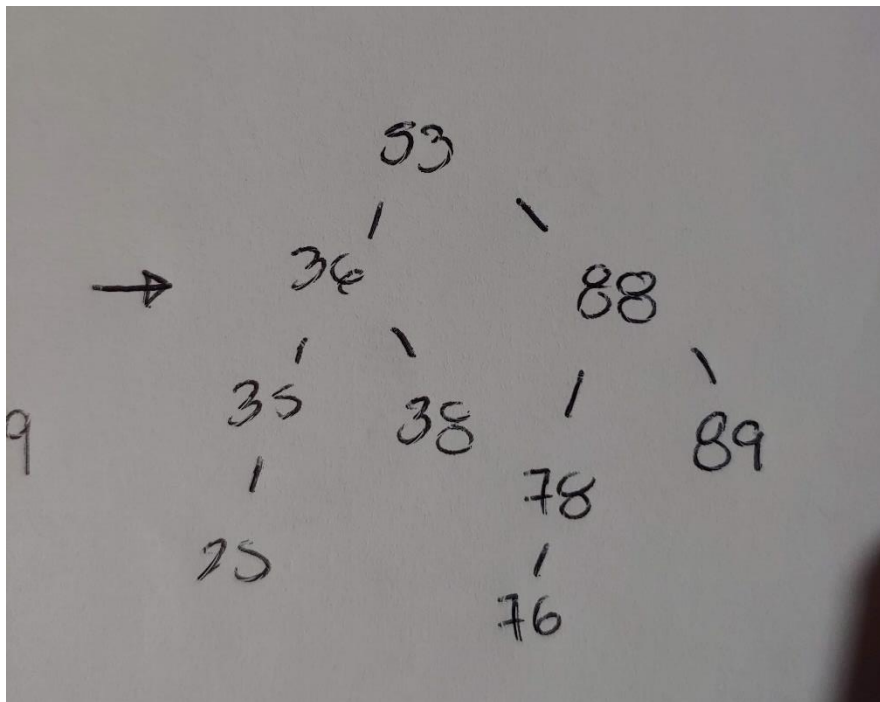 53
36 88
35 38
9 89
78
25
76